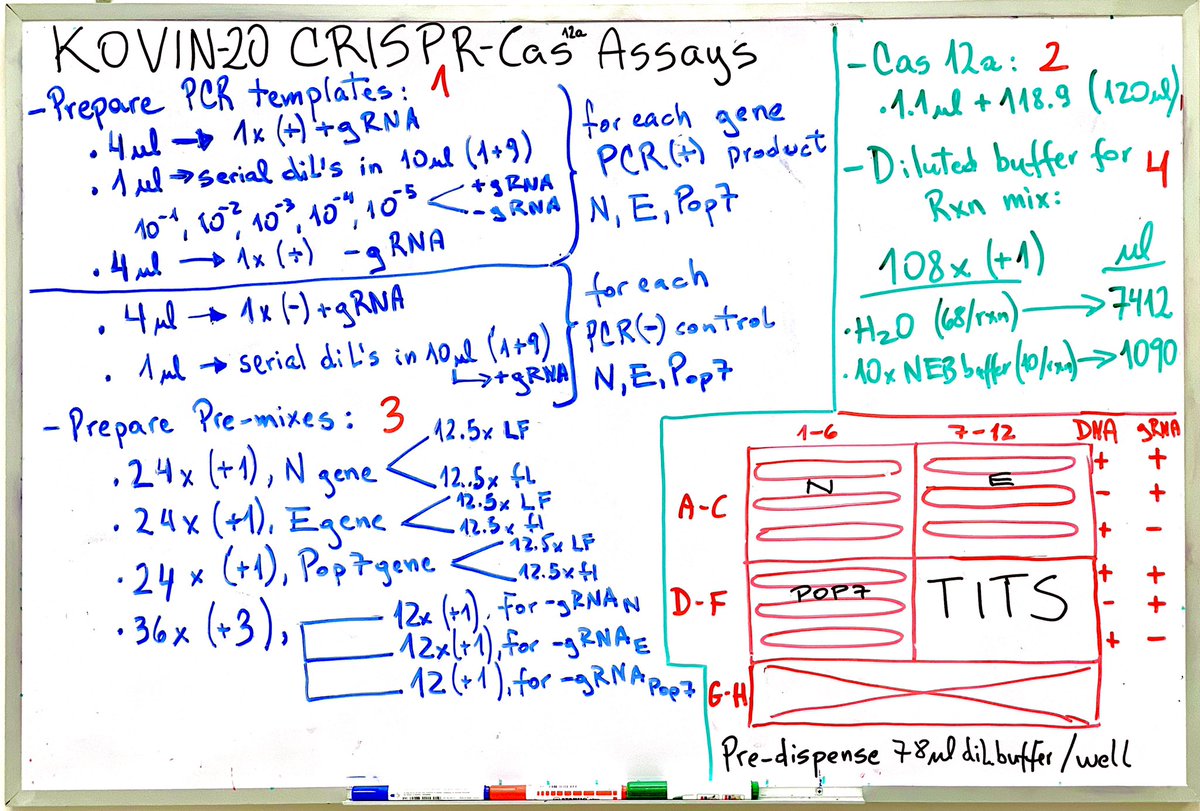 KOVIN-20 CRISPR-Cas12a Assays
- Prepare PCR templates: 1
. 4 µl → 1x (+) +gRNA
. 1 µl → serial dil's in 10µl (1+9)
10⁻¹, 10⁻², 10⁻³, 10⁻⁴, 10⁻⁵
+gRNA
-gRNA
. 4 µl → 1x (+) -gRNA
for each gene
PCR(+) product
N, E, Pop7
. 4 µl → 1x (-) +gRNA
. 1 µl → serial dil's in 10µl (1+9)
↳+gRNA
for each
PCR(-) control
N, E, Pop7
- Prepare Pre-mixes: 3
. 24x (+1), N gene
12.5x LF
12.5x fl
. 24x (+1), E gene
12.5x LF
12.5x fl
. 24x (+1), Pop7 gene
12.5x LF
12.5x fl
. 36x (+3),
12x (+1), for -gRNA N
12x (+1), for -gRNA E
12 (+1), for -gRNA Pop7
- Cas 12a: 2
. 1.1µl + 118.9 (120µl)
- Diluted buffer for 4
Rxn mix:
108x (+1) µl
. H₂O (68/rxn) → 7412
. 10x NEB buffer (10/rxn) → 1090
1-6 7-12 DNA gRNA
A-C N E
+ +
- +
+ -
D-F POP7 TITS
+ +
- +
+ -
G-H
Pre-dispense 78µl dil. buffer/well